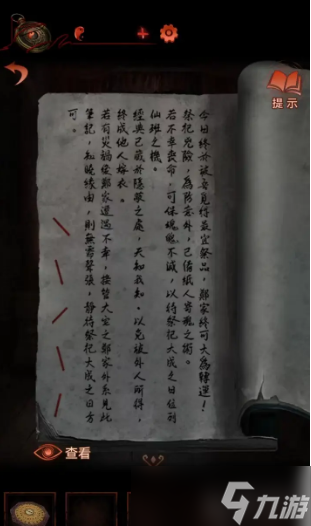 今日終於被吾覓得最宜祭品，鄭家終可大為轉運！
祭祀危險，為防意外，已借紙人寄魂之術。
若不幸喪命，可保魂魄不滅，以待祭祀大成之日位列
仙班之機。
經典已藏於隱蔽之處，天知我知。以免被外人所得，
終成他人嫁衣。
若有災禍使鄭家遭遇不幸，接管大宅之鄭家外系見此
筆記，知曉緣由，則無需聲張，靜待祭祀大成之日方
可。
提示
查看
九游